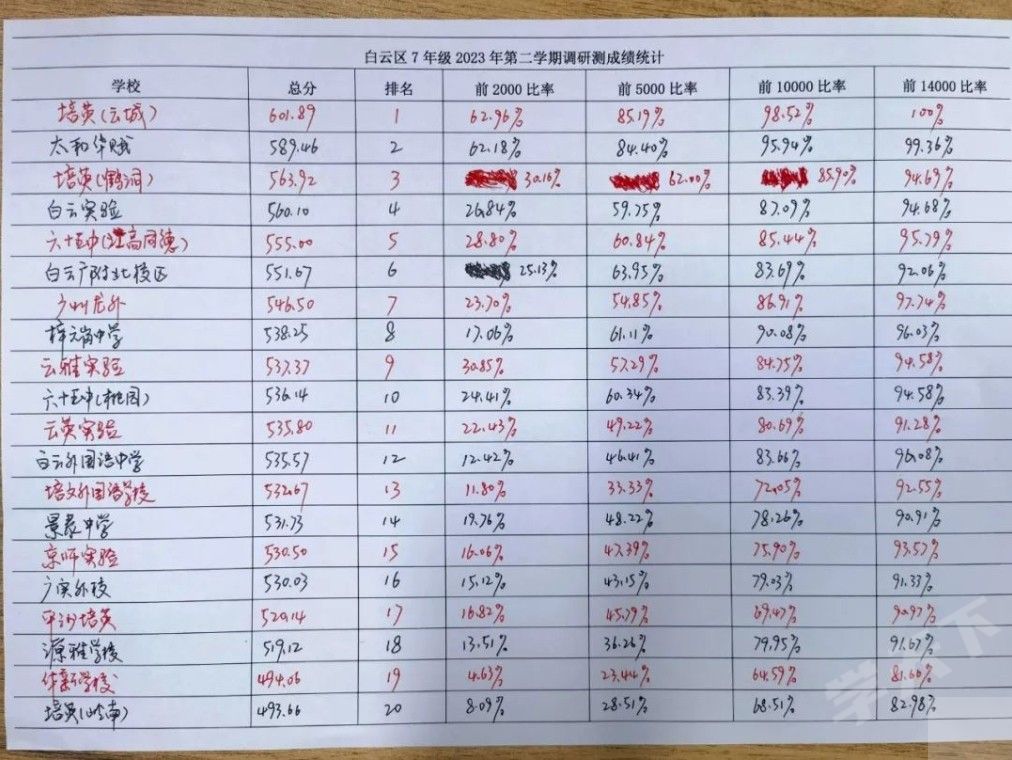 白云区7年级2023年第二学期调研测成绩统计
学校 总分 排名 前2000比率 前5000比率 前10000比率 前14000比率
培英(云城) 601.89 1 62.96% 85.19% 98.52% 100%
太和华赋 589.46 2 62.18% 84.40% 95.94% 99.36%
培英(鹤洞) 563.92 3 30.16% 62.00% 85.90% 94.69%
白云实验 560.10 4 26.84% 59.75% 87.09% 94.68%
六十五中(江高同德) 555.00 5 28.80% 60.84% 85.44% 95.79%
白云广附北校区 551.67 6 25.13% 63.95% 83.69% 92.06%
广州龙外 546.50 7 23.70% 54.85% 86.91% 97.74%
梓元岗中学 538.25 8 17.06% 61.11% 90.08% 96.03%
云雅实验 537.37 9 30.85% 57.29% 84.75% 94.58%
六十五中(桃园) 536.14 10 24.41% 60.34% 83.39% 94.58%
云英实验 535.80 11 22.43% 49.22% 80.69% 91.28%
白云外国语中学 535.57 12 12.42% 46.41% 83.66% 96.08%
培文外国语学校 532.67 13 11.80% 33.33% 72.05% 92.55%
景泰中学 531.73 14 19.76% 48.22% 78.26% 90.91%
京师实验 530.50 15 16.06% 47.39% 75.90% 93.57%
广实外校 530.03 16 15.12% 43.15% 79.03% 91.33%
平沙培英 520.14 17 16.82% 45.79% 69.47% 90.97%
源雅学校 519.12 18 13.51% 36.26% 79.95% 91.67%
华新学校 494.06 19 4.63% 23.44% 64.59% 81.66%
培英(岭南) 493.66 20 8.09% 28.51% 68.51% 82.98%